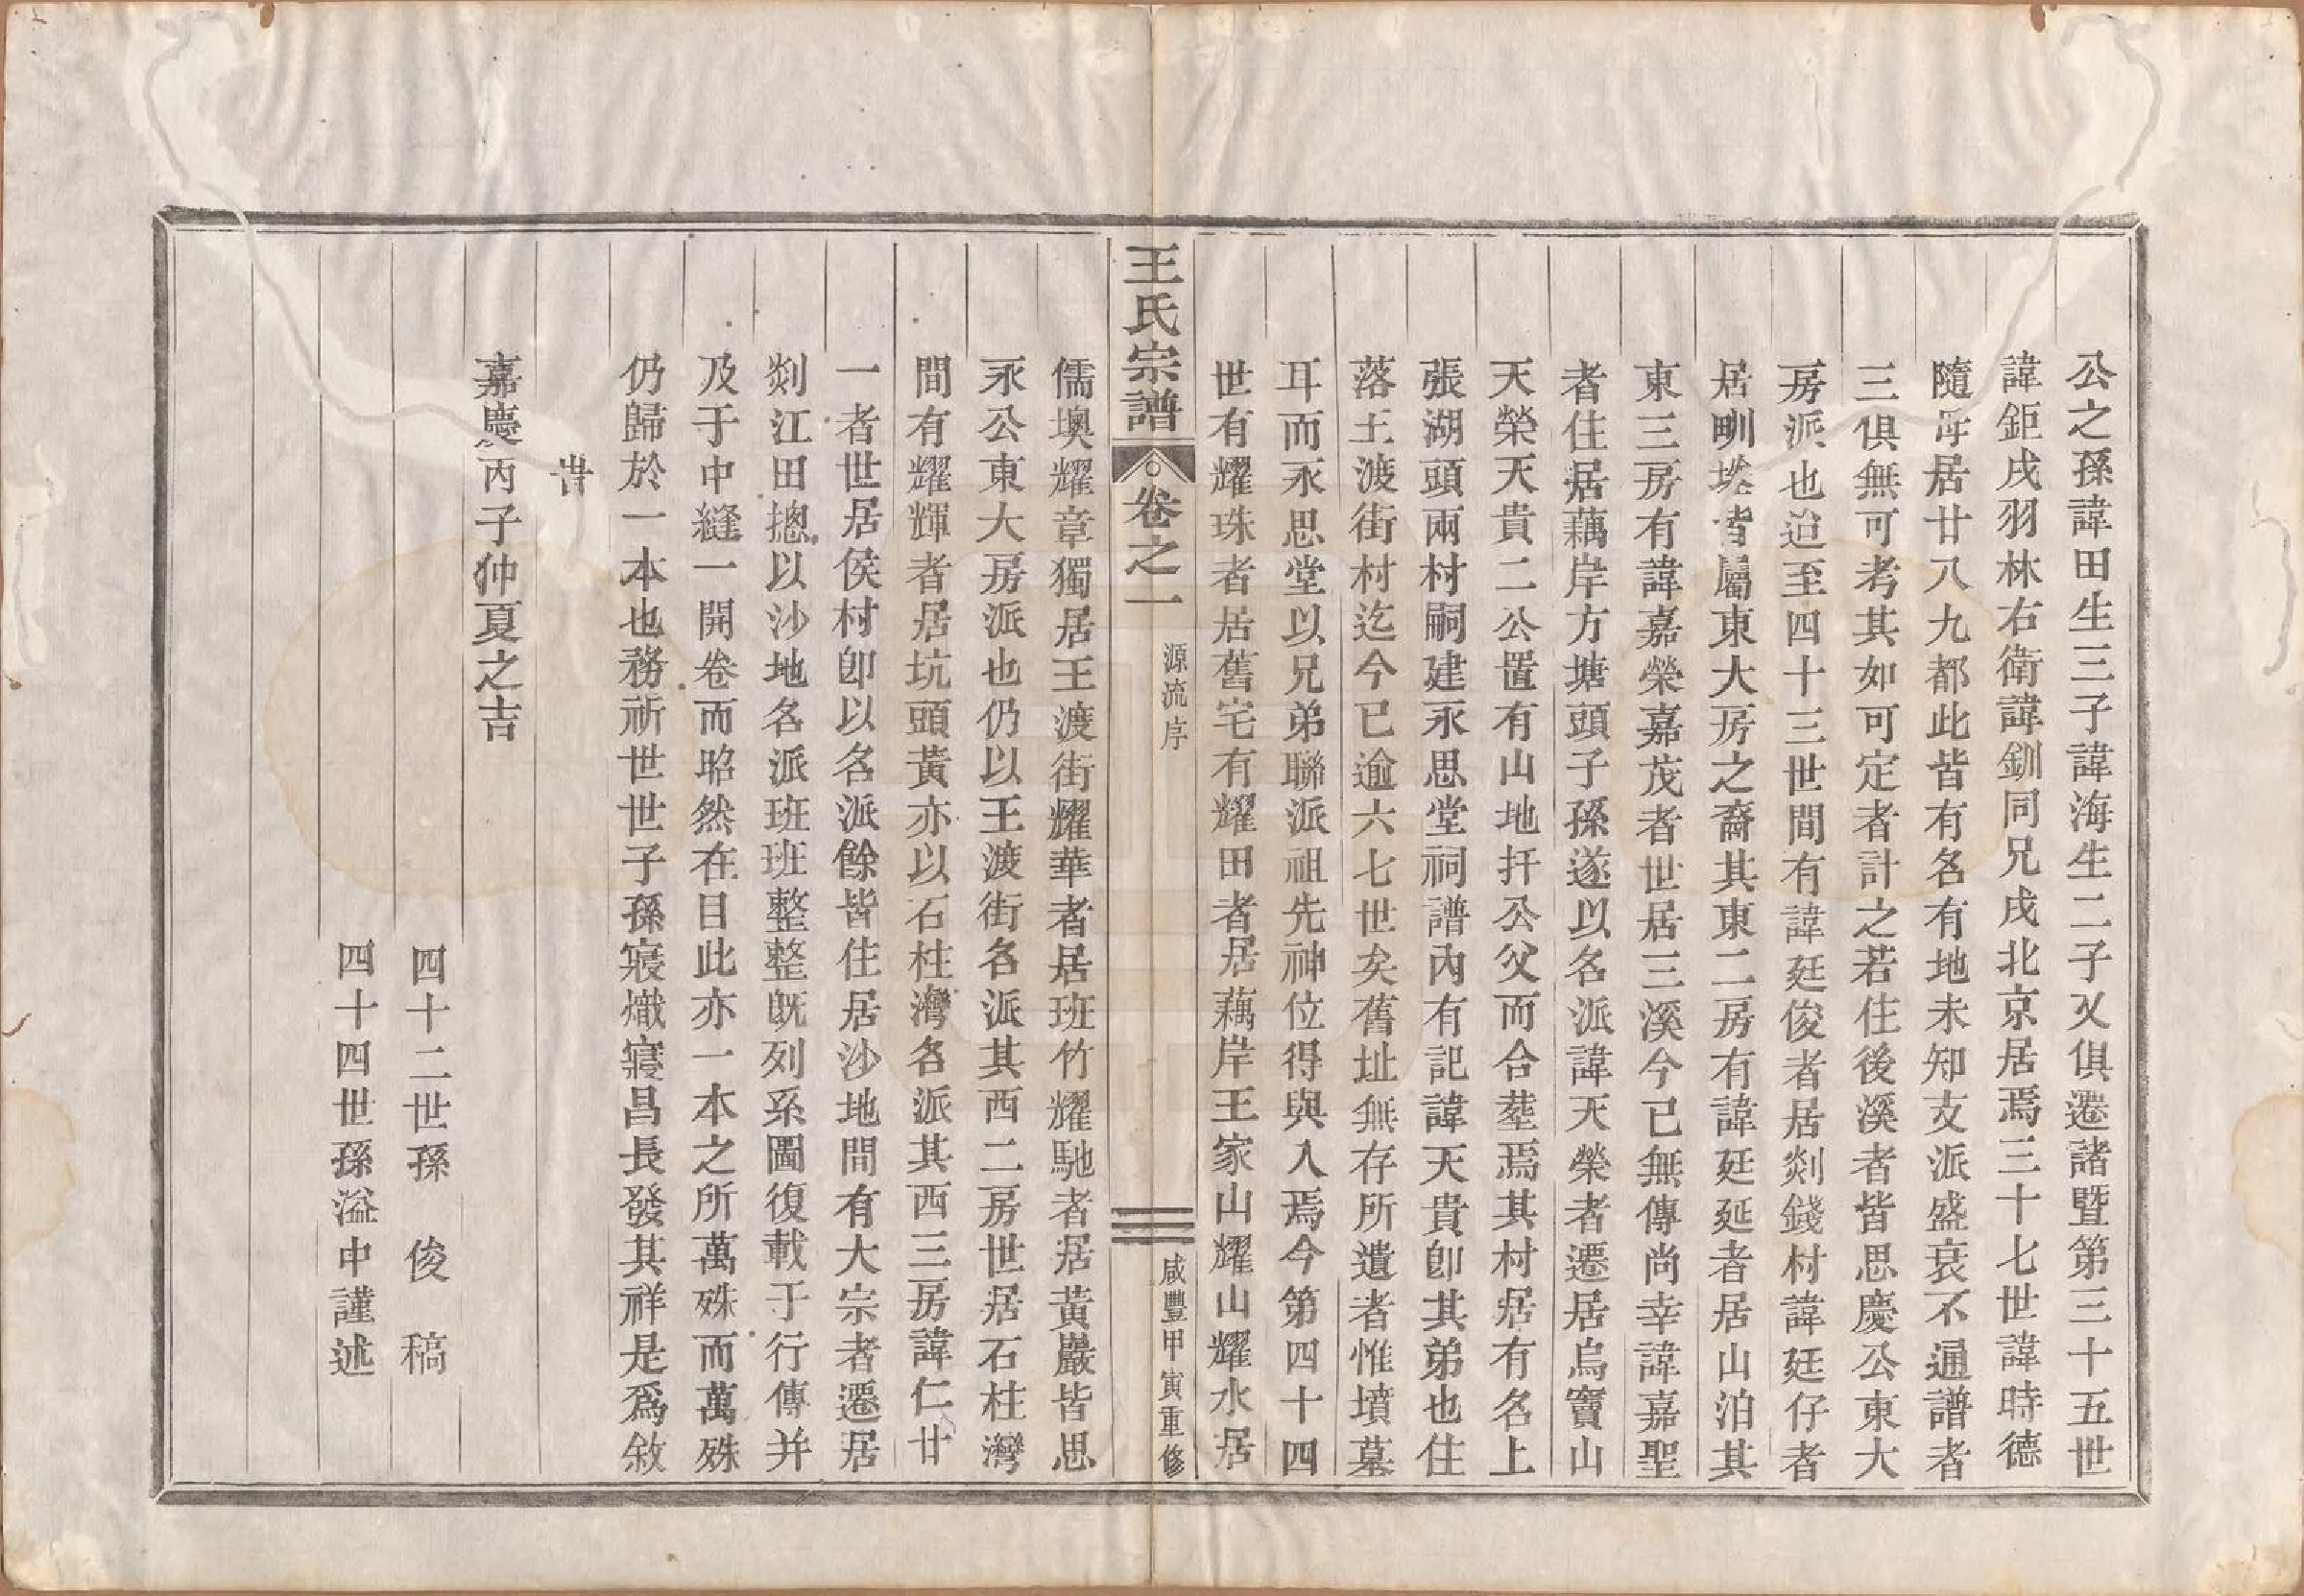 公之孫諱田生三子諱海生二子乂俱遷諸暨第三十五世
諱鉅戌羽林右衛諱釧同兄戌北京居焉三十七世諱時德
隨母居廿八九都此皆有名有地未知支派盛衰不通譜者
三俱無可考其如可定者計之若住後溪者皆思慶公東大
房派也迨至四十三世間有諱廷俊者居剡錢村諱廷仔者
居甽塔皆屬東大房之裔其東二房有諱廷延者居山泊其
東三房有諱嘉榮嘉茂者世居三溪今已無傳尚幸諱嘉聖
者住居藕岸方塘頭子孫遂以名派諱天榮者遷居烏竇山
天榮天貴二公置有山地扞公父而合塟焉其村居有名上
張湖頭兩村嗣建永思堂祠譜內有記諱天貴卽其弟也住
落王渡街村迄今已逾六七世矣舊址無存所遺者惟墳墓
耳而永思堂以兄弟聯派祖先神位得與入焉今第四十四
世有耀珠者居舊宅有耀田者居藕岸王家山耀山耀水居
王氏宗譜 卷之一 源流序 咸豐甲寅重修
儒墺耀章獨居王渡街耀華者居班竹耀馳者居黃巖皆思
永公東大房派也仍以王渡街名派其西二房世居石柱灣
間有耀輝者居坑頭黃亦以石柱灣名派其西三房諱仁廿
一者世居侯村卽以名派餘皆住居沙地間有大宗者遷居
剡江田摠以沙地名派班班整整旣列系圖復載于行傳并
及于中縫一開卷而昭然在目此亦一本之所萬殊而萬殊
仍歸於一本也務祈世世子孫寖熾寖昌長發其祥是爲敘
旹
嘉慶丙子仲夏之吉
四十二世孫 俊 稿
四十四世孫溢中謹述